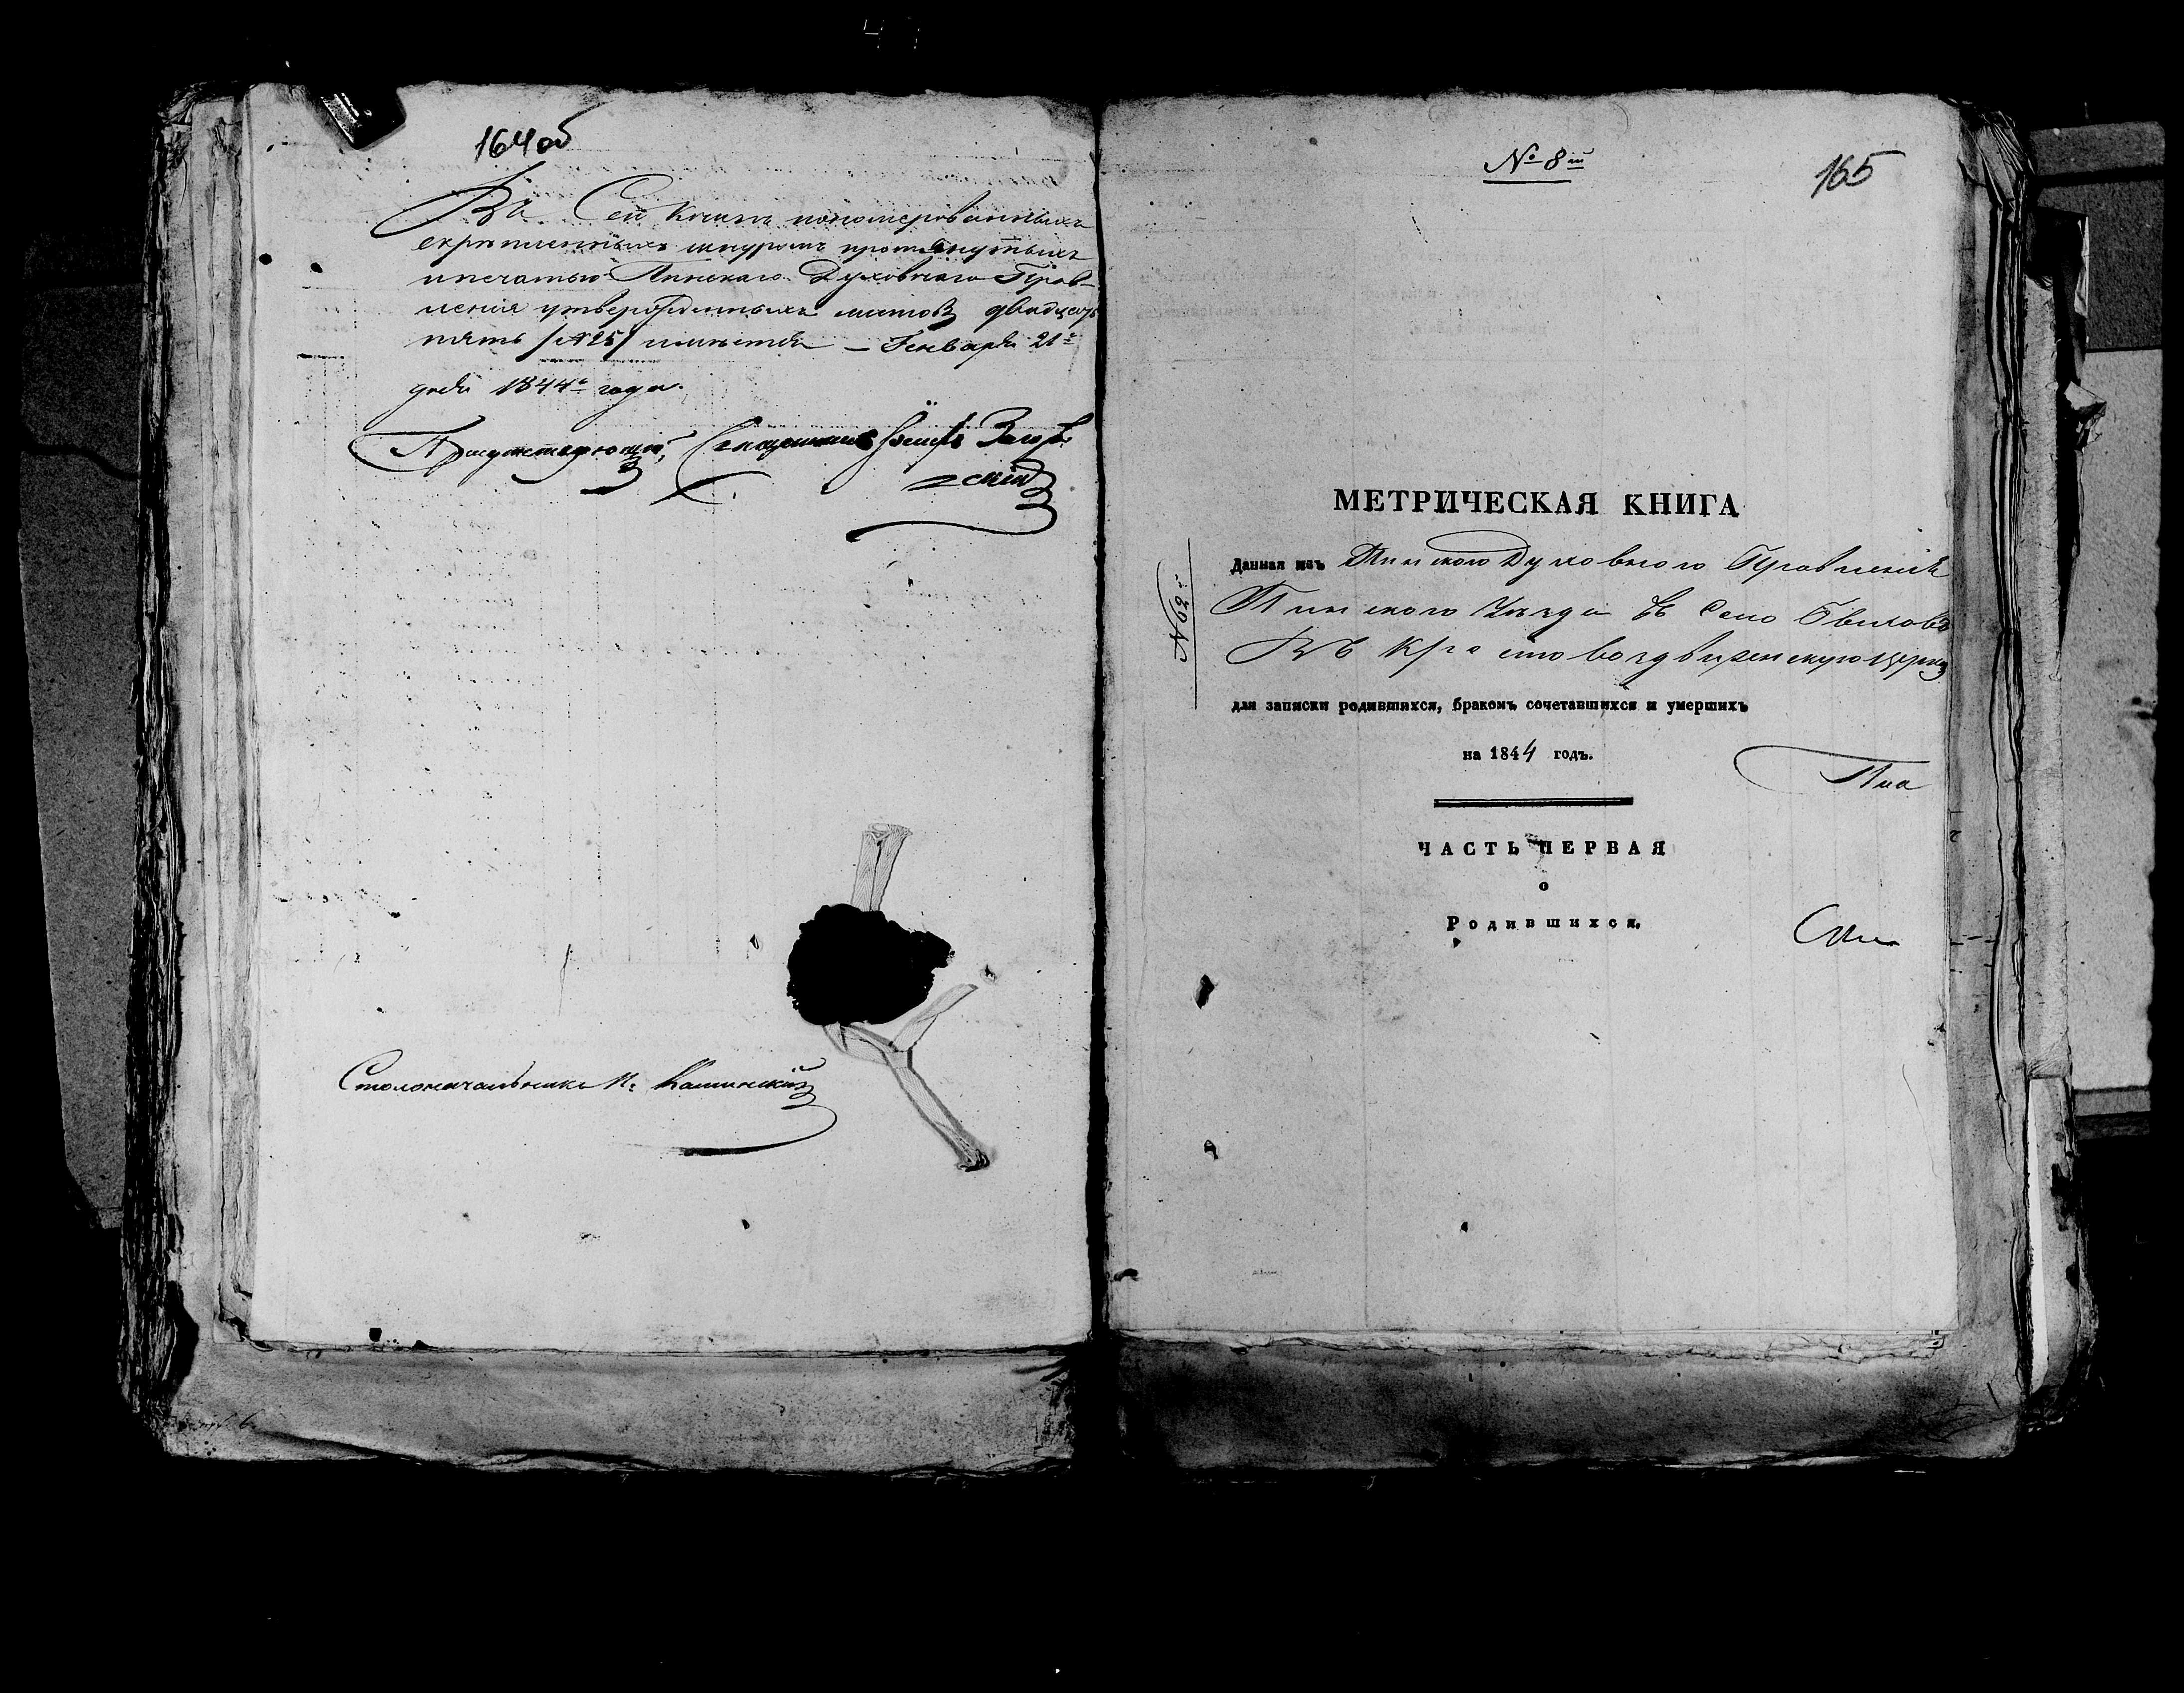 164 об
Въ Сей Книгѣ пономерованныхъ
скрѣпленныхъ шнуромъ протянутыхъ
и печатью Пинскаго Духовнаго Прав-
ленія утвержденныхъ листовъ двадцать
пять /№ 25/ имѣется – Генваря 21г
дня 1844г года.
Присутствующій, Священникъ Іосифъ Загор-
скій
Столоначальникъ И: Калинскій
№ 8й
165
МЕТРИЧЕСКАЯ КНИГА
Данная изъ Пинскаго Духовнаго Правленія
Пинскаго Уѣзда въ Село
Въ Крестовоздвиженскую церковь
для записки родившихся, бракомъ сочетавшихся и умершихъ
на 1844 годъ.
ЧАСТЬ ПЕРВАЯ
о
Родившихся.